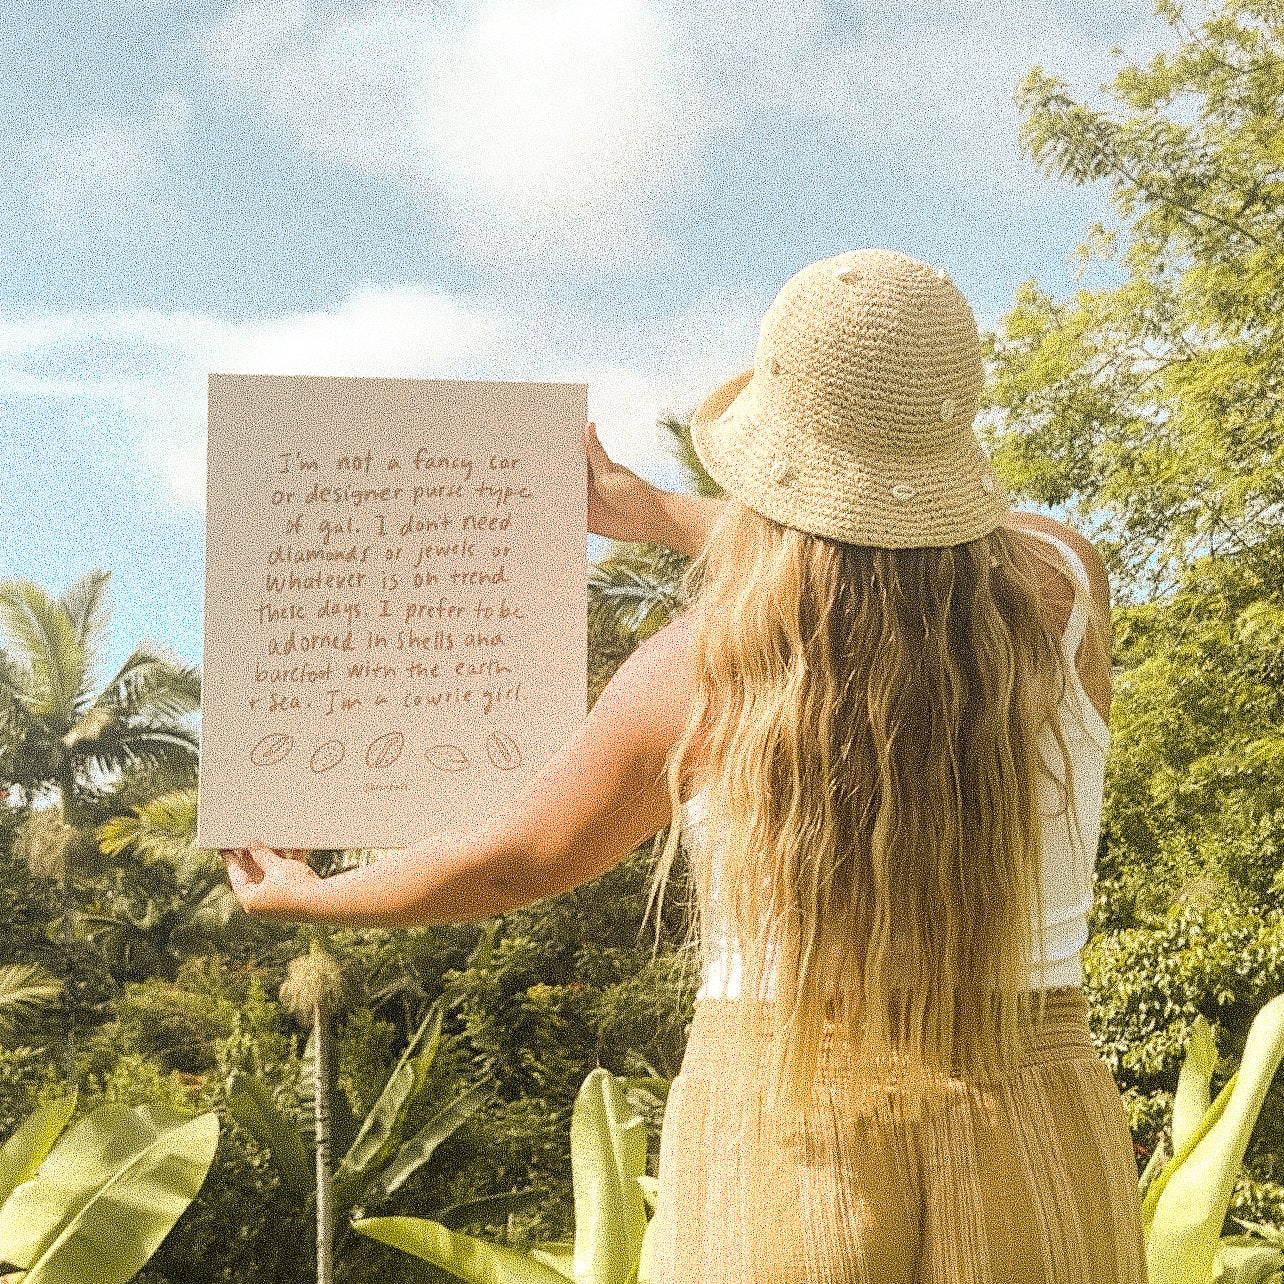 I'm not a fancy car
or designer purse type
of gal. I dont need
diamonds or jewels or
whatever is on trend
these days. I prefer to be
adorned in shells and
barefoot with the earth
+ sea. I'm a cowrie girl.